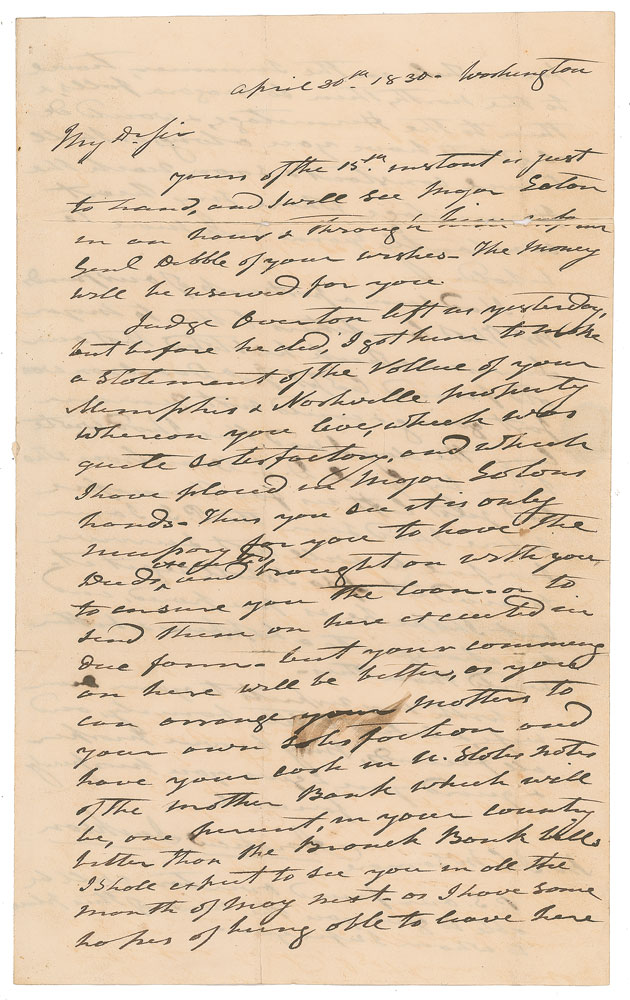 April 30th 1830 - Washington
My Dr Sir
yours of the 15th instant is just
to hand, and I will see Major Eaton
in an hour & through him inform
Genl Dibble of your wishes - The Money
will be reserved for you
Judge Overton left us yesterday,
but before he did, I got him to make
a Statement of the Vallue of your
Memphis & Nashville property
whereon you live, which was
quite satisfactory, and which
I have placed in Major Eatons
hands - Thus you see it is only
necessary for you to have the
Deeds executed and brought on with you,
to ensure you the loan - or to
send them on here executed in
due form - but your comeing
on here will be better, as you
can arrange your matters to
your own satisfaction and
have your cash in U. States notes
of the mother Bank which will
be, one percent, in your county
better than the Branch Bank bills
I shall expect to see you in all the
month of May next - as I have some
hopes of being able to leave here